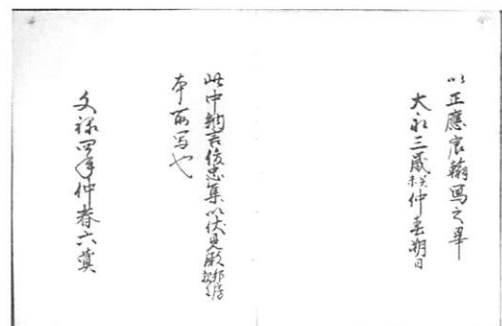 以正應宸翰写之畢
大永三歳癸未仲春朔日
此中納言俊忠集以伏見殿邦房親王
本所写也
文禄四年仲春六蓂